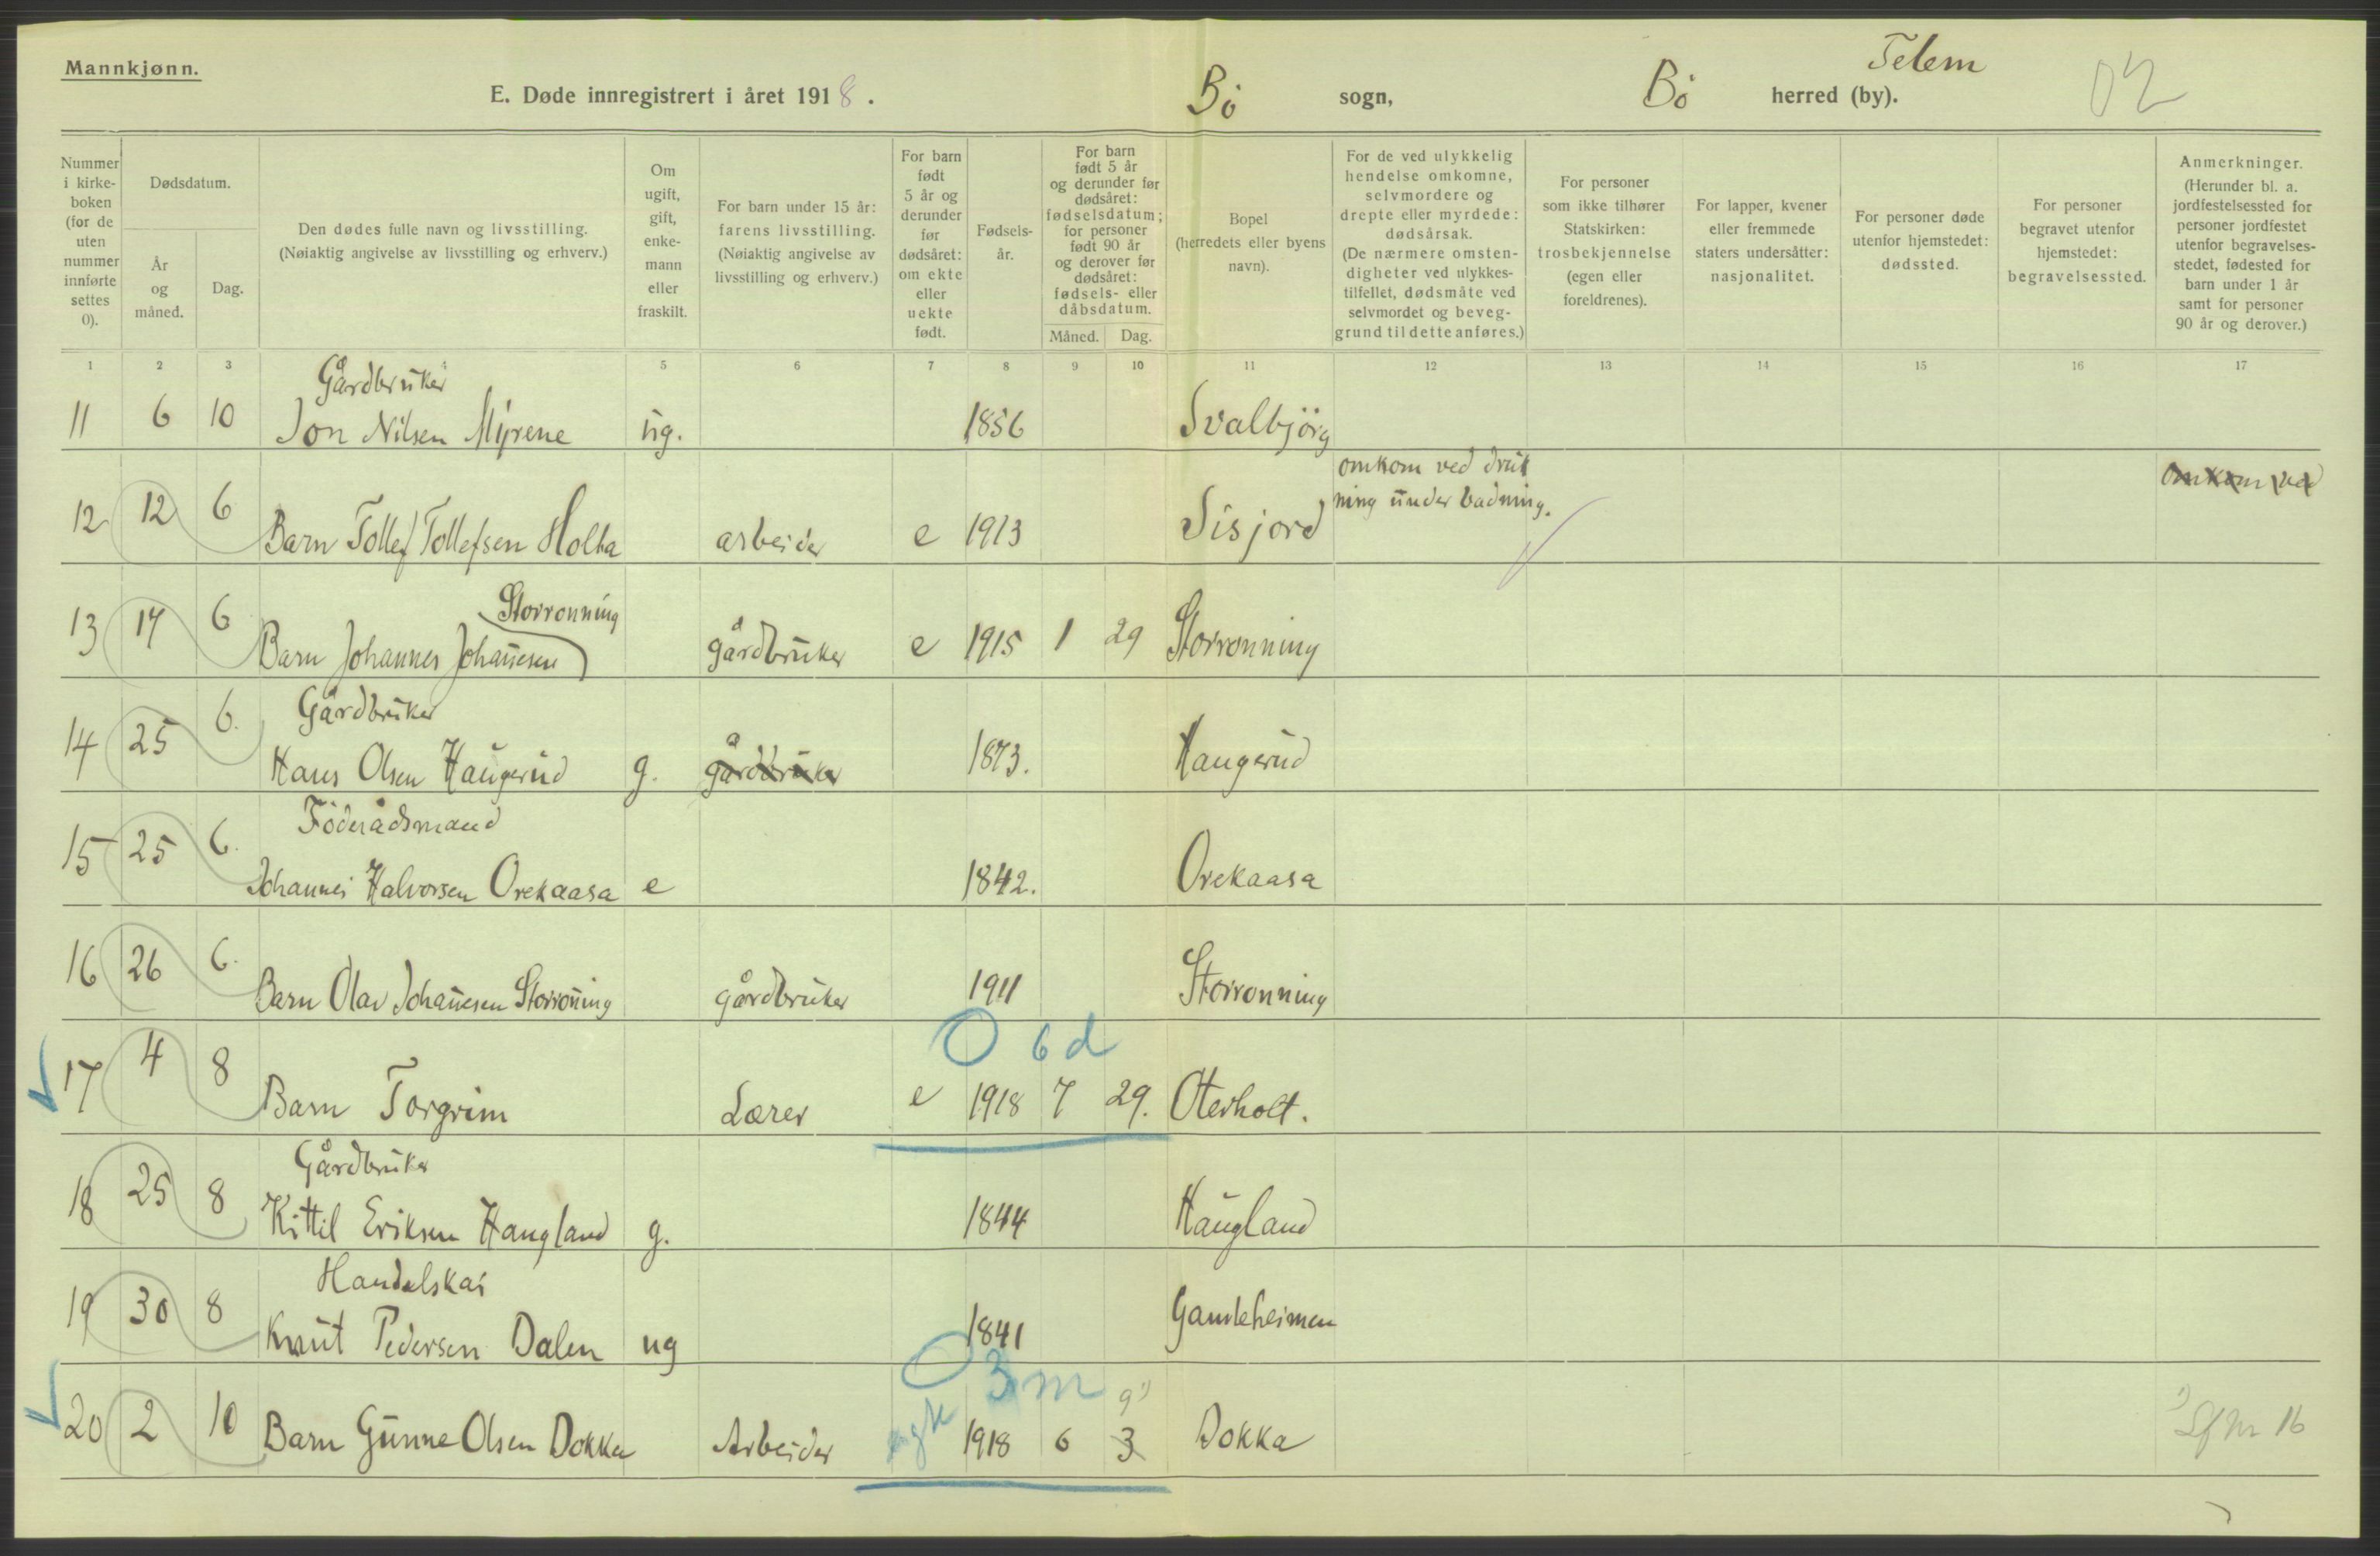 Mannkjønn.
E. Døde innregistrert i året 1918. Bö sogn, Bö herred (by). Telem 02
Nummer i kirke-boken (før de uten nummer innførte settes 0).
Dødsdatum.
År og måned.
Dag.
Den dødes fulle navn og livsstilling.
(Nøiaktig angivelse av livsstilling og erhverv.)
Om ugift, gift, enke-mann eller fraskilt.
For barn under 15 år: farens livsstilling.
(Nøiaktig angivelse av livsstilling og erhverv.)
For barn født 5 år og derunder før dødsåret: om ekte eller uekte født.
Fødsels-år.
For barn født 5 år og derunder før dødsåret: fødselsdatum; for personer født 90 år og derover før dødsåret: fødsels- eller dåbsdatum.
Måned.
Dag.
Bopel (herredets eller byens navn).
For de ved ulykkelig hendelse omkomne, selvmordere og drepte eller myrdede: dødsårsak.
(De nærmere omsten-digheter ved ulykkes-tilfellet, dødsmåte ved selvmordet og beveg-grund til dette anføres.)
For personer som ikke tilhører Statskirken: trosbekjennelse (egen eller foreldrenes).
For lapper, kvener eller fremmede staters undersåtter: nasjonalitet.
For personer døde utenfor hjemstedet: dødssted.
For personer begravet utenfor hjemstedet: begravelsessted.
Anmerkninger.
(Herunder bl. a. jordfestelsessted for personer jordfestet utenfor begravelses-stedet, fødested for barn under 1 år samt for personer 90 år og derover.)
1 2 3 4 5 6 7 8 9 10 11 12 13 14 15 16 17
Gårdbruker
11 6 10 Jon Nilsen Myrene ug. 1856 Svalbjörg
omkom ved druk
ning under badning.
omkom ved
12 12 6 Barn Tollef Tollefsen Holta arbeider e 1913 Sisjord
Storronning
13 17 6 Barn Johannes Johannesen gårdbruker e 1915 1 29 Storronning
Gårdbruker
14 25 6. Hans Olsen Haugerud g. gårdbruker 1873. Haugerud
Föderådsmand
15 25 6. Johannes Halvorsen Orekaasa e 1842. Orekaasa
16 26 6. Barn Olav Johannesen Storronning gårdbruker 1911 Storronning
0 6 d
17 4 8 Barn Torgrim Lærer e 1918 7 29. Oterholt.
Gårdbruker
18 25 8 Kittil Eriksen Haugland g. 1844 Haugland
Handelskar
19 30 8 Knut Pedersen Dalen ug 1841 Gamleheimen
0 3 m 9 1)
20 2 10 Barn Gunne Olsen Dokka Arbeider 1918 6 3 Dokka 1) Lf nr 16